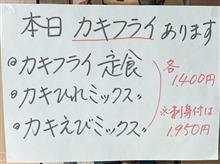 本日 カキフライ あります
◎カキフライ 定食
◎カキひれミックス〃
◎カキえびミックス〃
各
1,400円
※刺身付は
1,950円